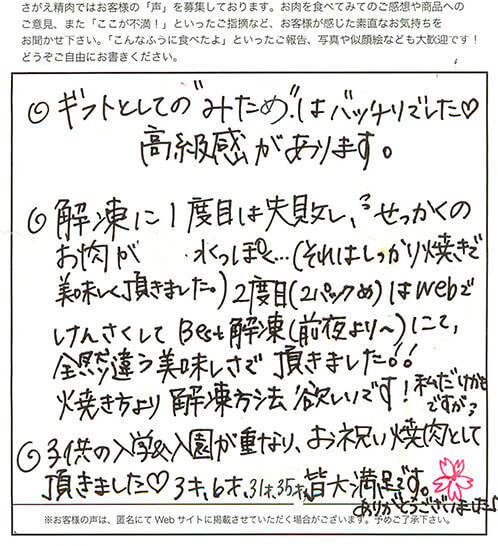 さがえ精肉ではお客様の「声」を募集しております。お肉を食べてみてのご感想や商品への
ご意見、また「ここが不満！」といったご指摘など、お客様が感じた素直なお気持ちを
お聞かせ下さい。「こんなふうに食べたよ」といったご報告、写真や似顔絵なども大歓迎です！
どうぞご自由にお書きください。
◎ギフトとしての"みため"はバッチリでした♡
高級感があります。
◎解凍に1度目は失敗し、せっかくの
お肉が 水っぽく…(それはしっかり焼きで
美味しく頂きました。)2度目(2パックめ)はwebで
けんさくしてBest解凍(前夜より〜)にて、
全然違う美味しさで頂きました!!
焼き方より解凍方法欲しいです!私だけかも
ですが?
◎子供の入学&入園が重なり、お祝い焼肉として
頂きました♡3才,6才,31才,35才,皆大満足です。
ありがとうございました♪
※お客様の声は、匿名にてWebサイトに掲載させていただく場合がございます。予めご了承下さい。